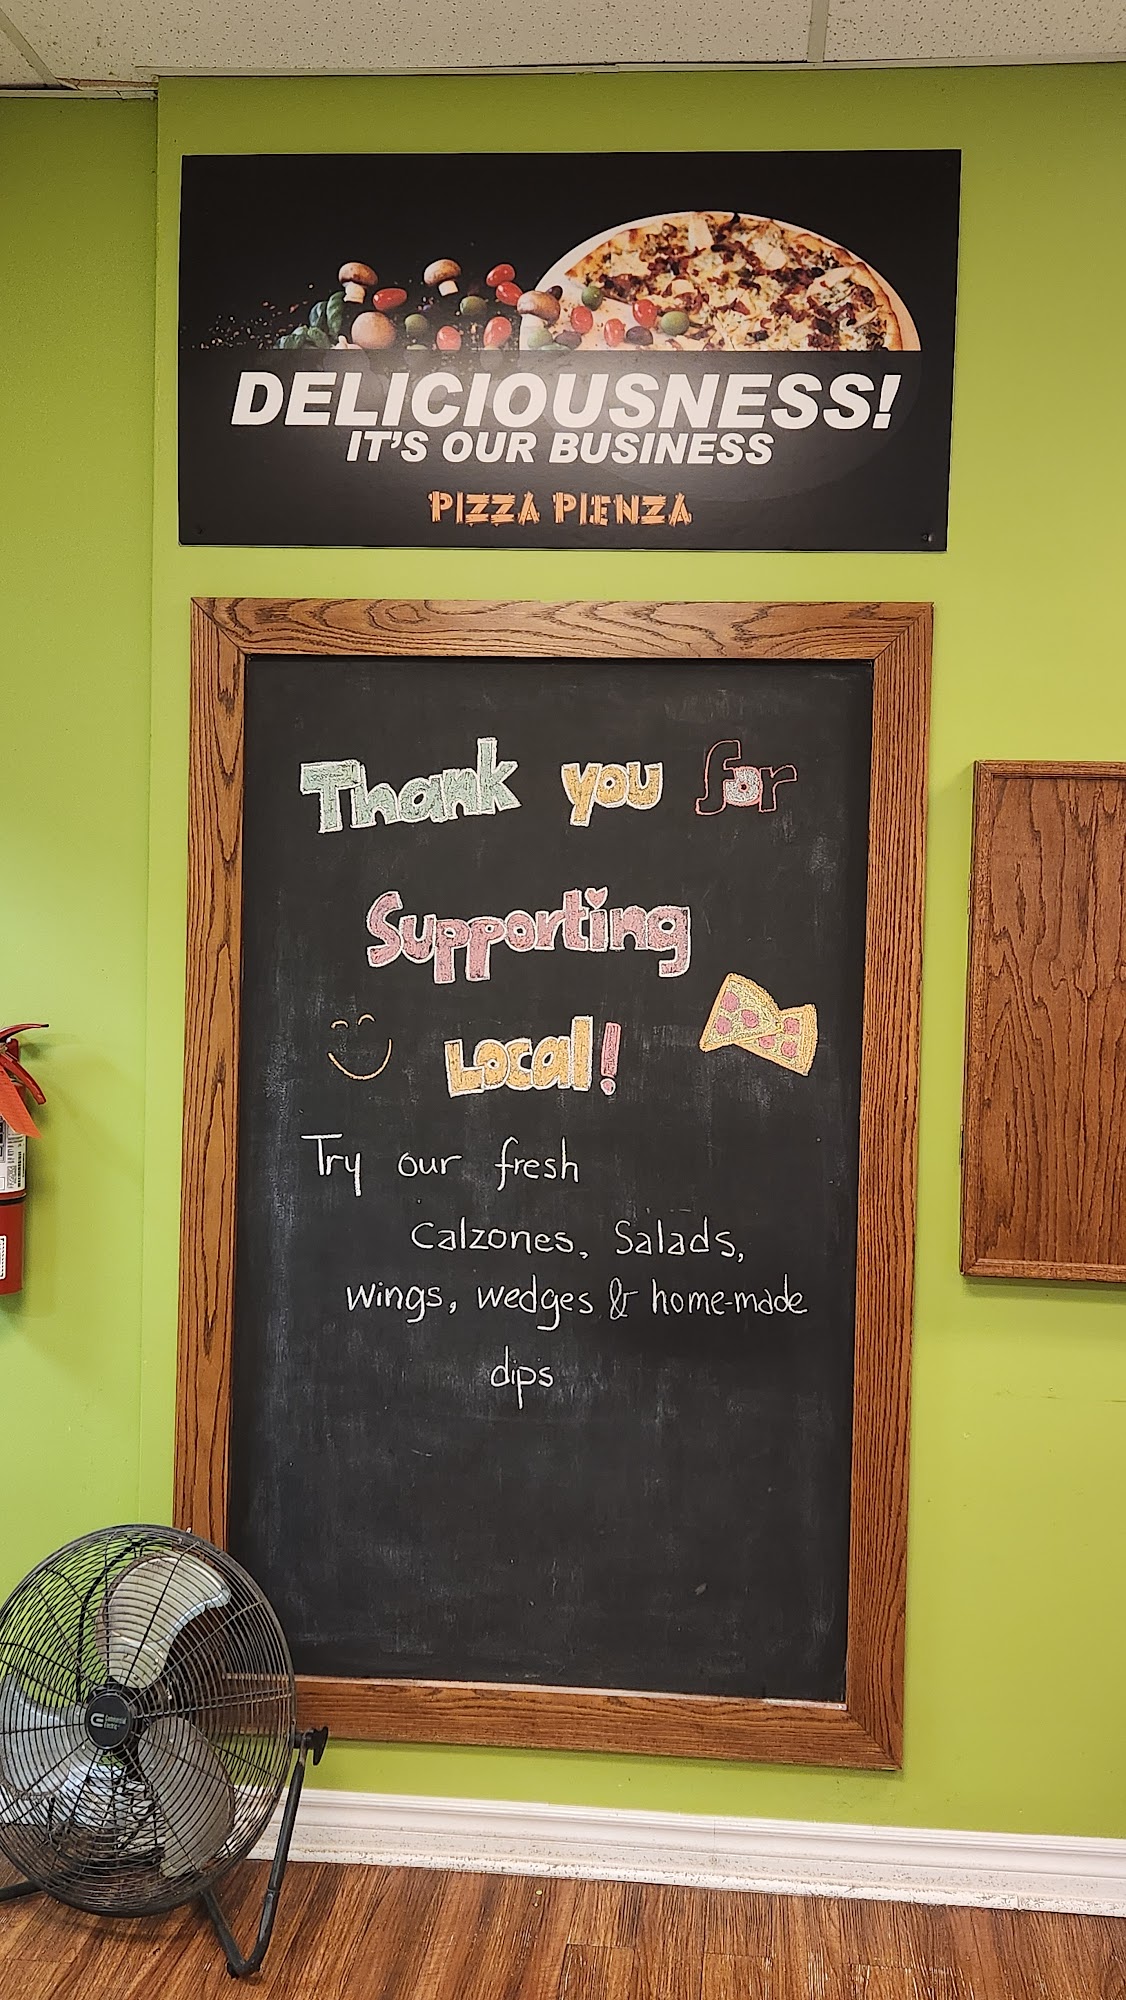 DELICIOUSNESS!
IT'S OUR BUSINESS
PIZZA PIENZA
Thank you for
Supporting
Local!
Try our fresh
Calzones, Salads,
wings, wedges & home-made
dips
Commercial
Electric